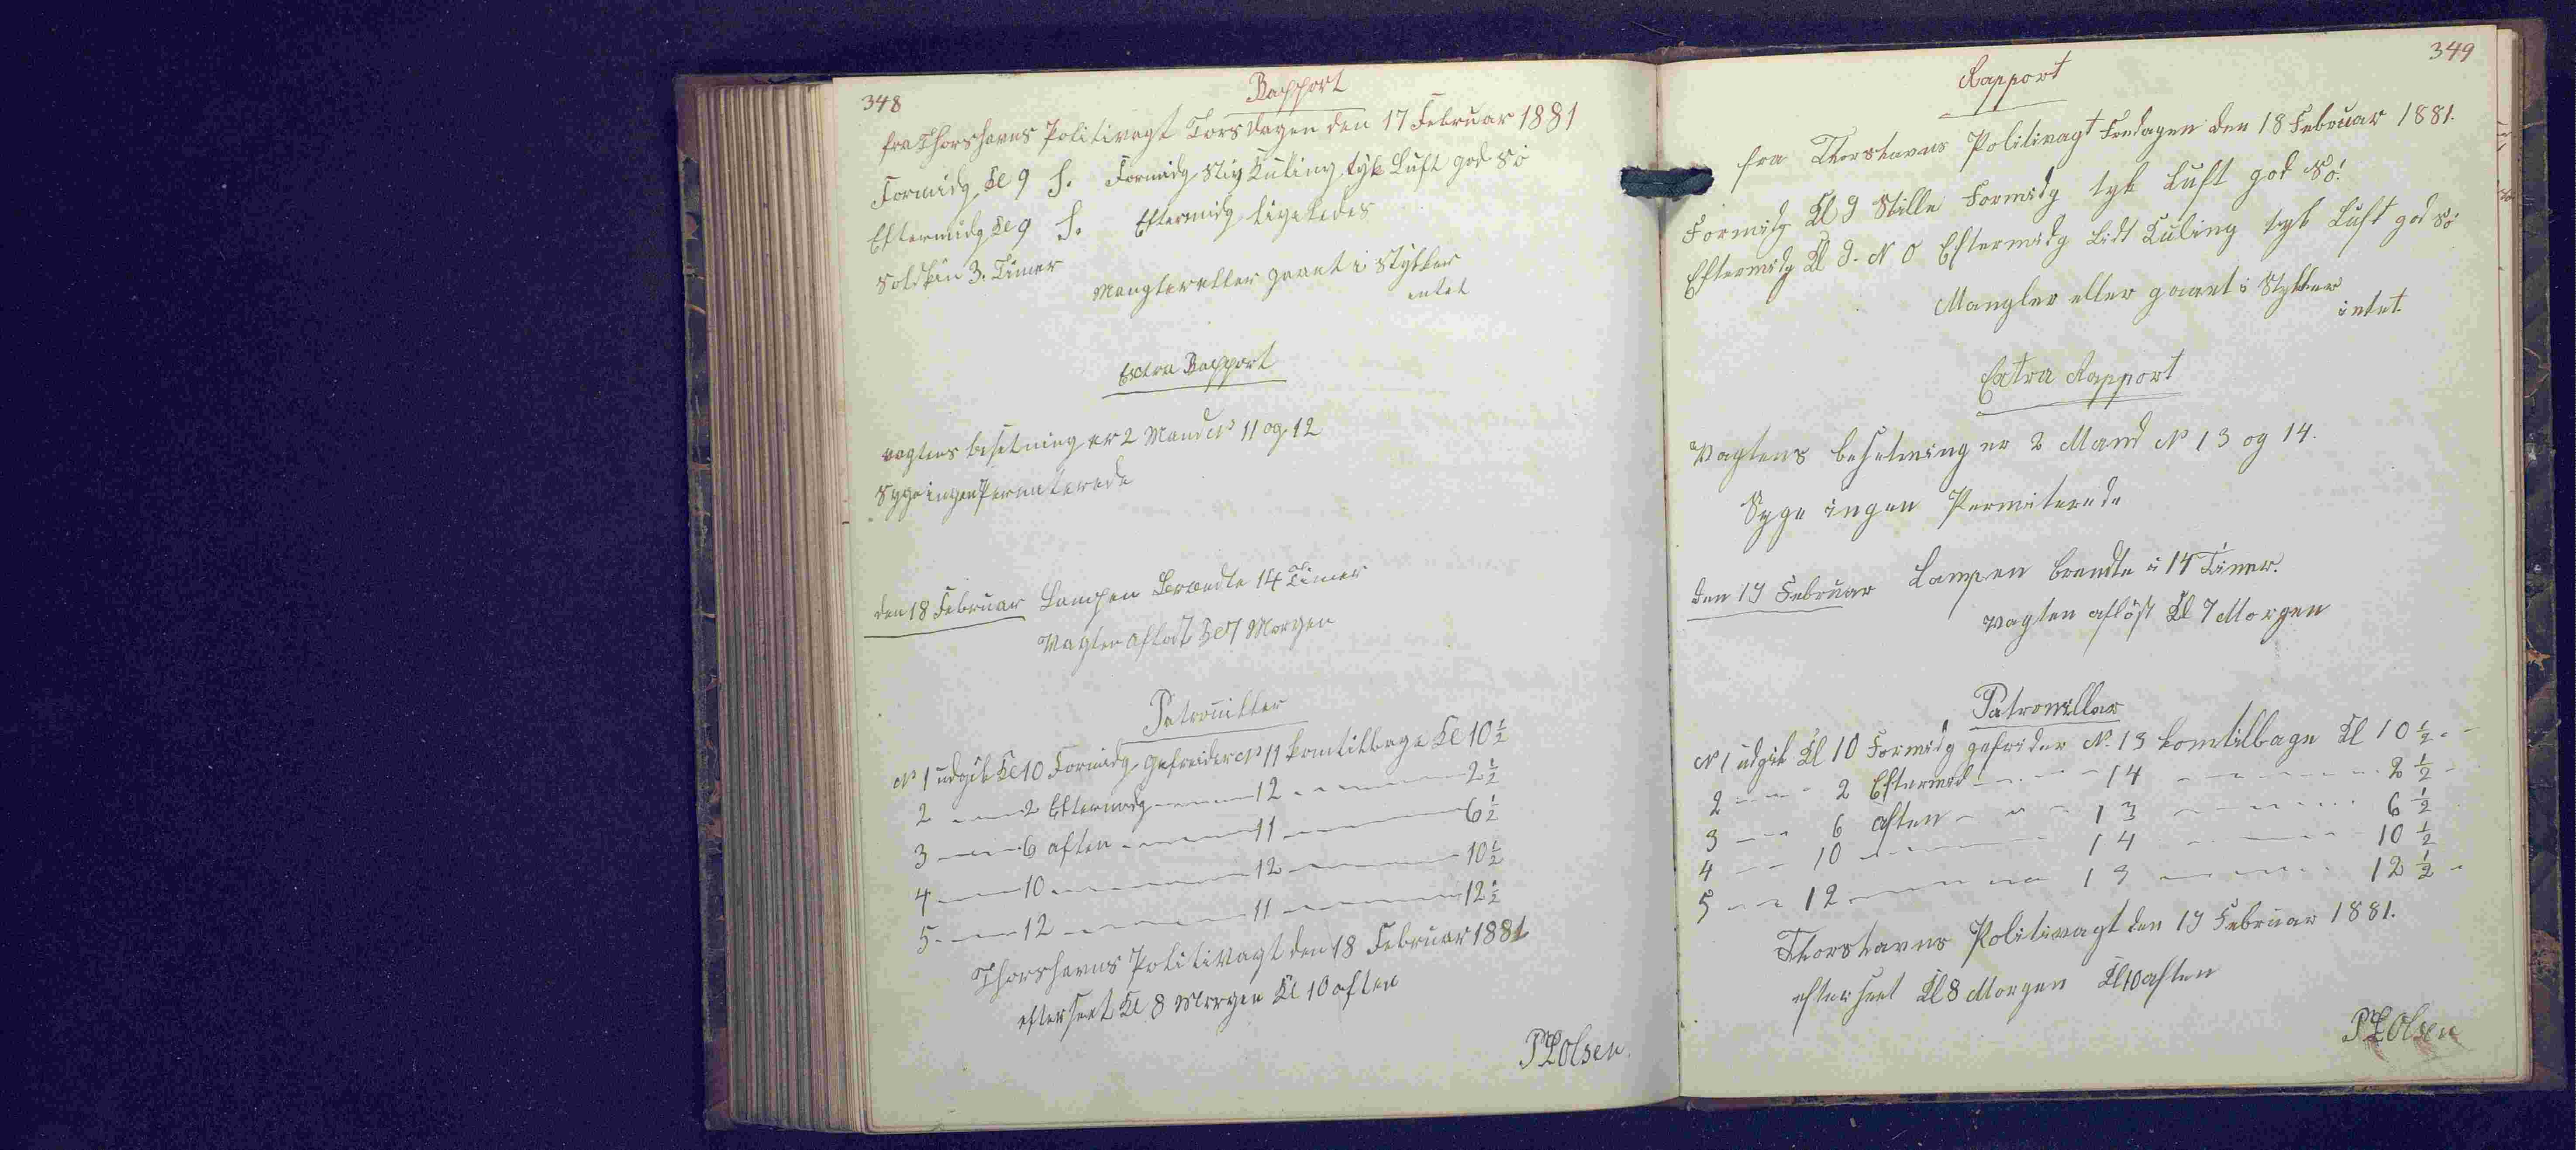 348
Rapport
fra Thorshavns Politivagt Torsdagen den 17 Februar 1881
Formidg Kl 9 S. Formidg Stiv Kuling tyk Luft god Sö
Eftermidg Kl 9 S. Eftermidg ligeledes
Solskin 3. Timer
Mangler eller gaaet i Stykker
intet
Extra Rapport
vagtens besetning er 2 Mand No 11 og 12
Syge ingen Permiterede
den 18 Februar Lampen Brændte 14 Timer
Vagten aflöst Kl 7 Morgen
Patrouiller
No 1 udgik Kl 10 Formidg gefreider No 11 kom tilbage Kl 10 ½
2 — 2 Eftermidg — 12 — 2 ½
3 — 6 aften — 11 — 6 ½
4 — 10 — 12 — 10 ½
5 — 12 — 11 — 12 ½
Thorshavns Politivagt den 18 Februar 1881
efterseet Kl 8 Morgen Kl 10 aften
Olsen.
349
Rapport
fra Thorshavns Politivagt Fredagen den 18 Februar 1881.
Formidg Kl 9 Stille Formidg tyk Luft god Sö.
Eftermidg Kl 9. N O Eftermidg Lidt Kuling tyk Luft god Sö
Mangler eller gaaet i Stykker
intet.
Extra Rapport
Vagtens besetning er 2 Mand No 13 og 14.
Syge ingen Permiterede
den 19 Februar Lampen brændte i 14 Timer.
vagten aflöst Kl 7 Morgen
Patrouiller
No 1 udgik Kl 10 Formidg gefrider No. 13 kom tilbage Kl 10 ½
2 — 2 Eftermid — 14 — 2 ½
3 — 6 aften — 13 — 6 ½
4 — 10 — 14 — 10 ½
5 — 12 — 13 — 12 ½
Thorshavns Politivagt den 19 Februar 1881.
efterseet Kl 8 Morgen Kl 10 aften
Olsen